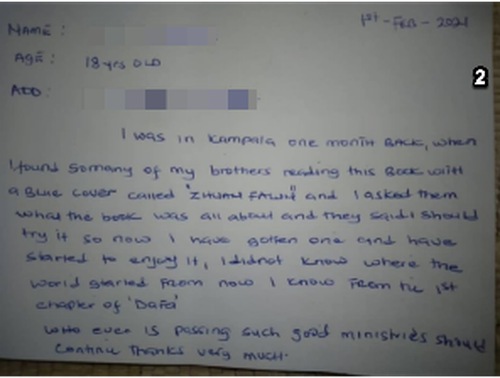 1st - FEB - 2021
NAME :
AGE : 18 yrs OLD
2
ADD :
I was in Kampala one month BACK, when
I found somany of my brothers reading this Book with
a Blue cover called "ZHUAN FALUN" and I asked them
what the book was all about and they said i should
try it so now I have gotten one and have
started to enjoy it, I didnot know where the
world started from now I know from the 1st
chapter of 'Dafa'
who ever is passing such good ministries should
continue thanks very much.